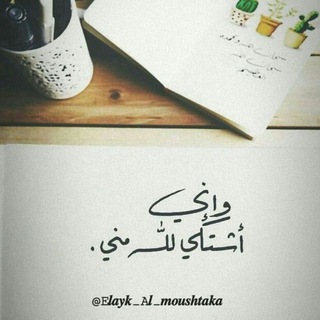 وإني
أشتكي لله مني .
@Elayk_Al_moushtaka